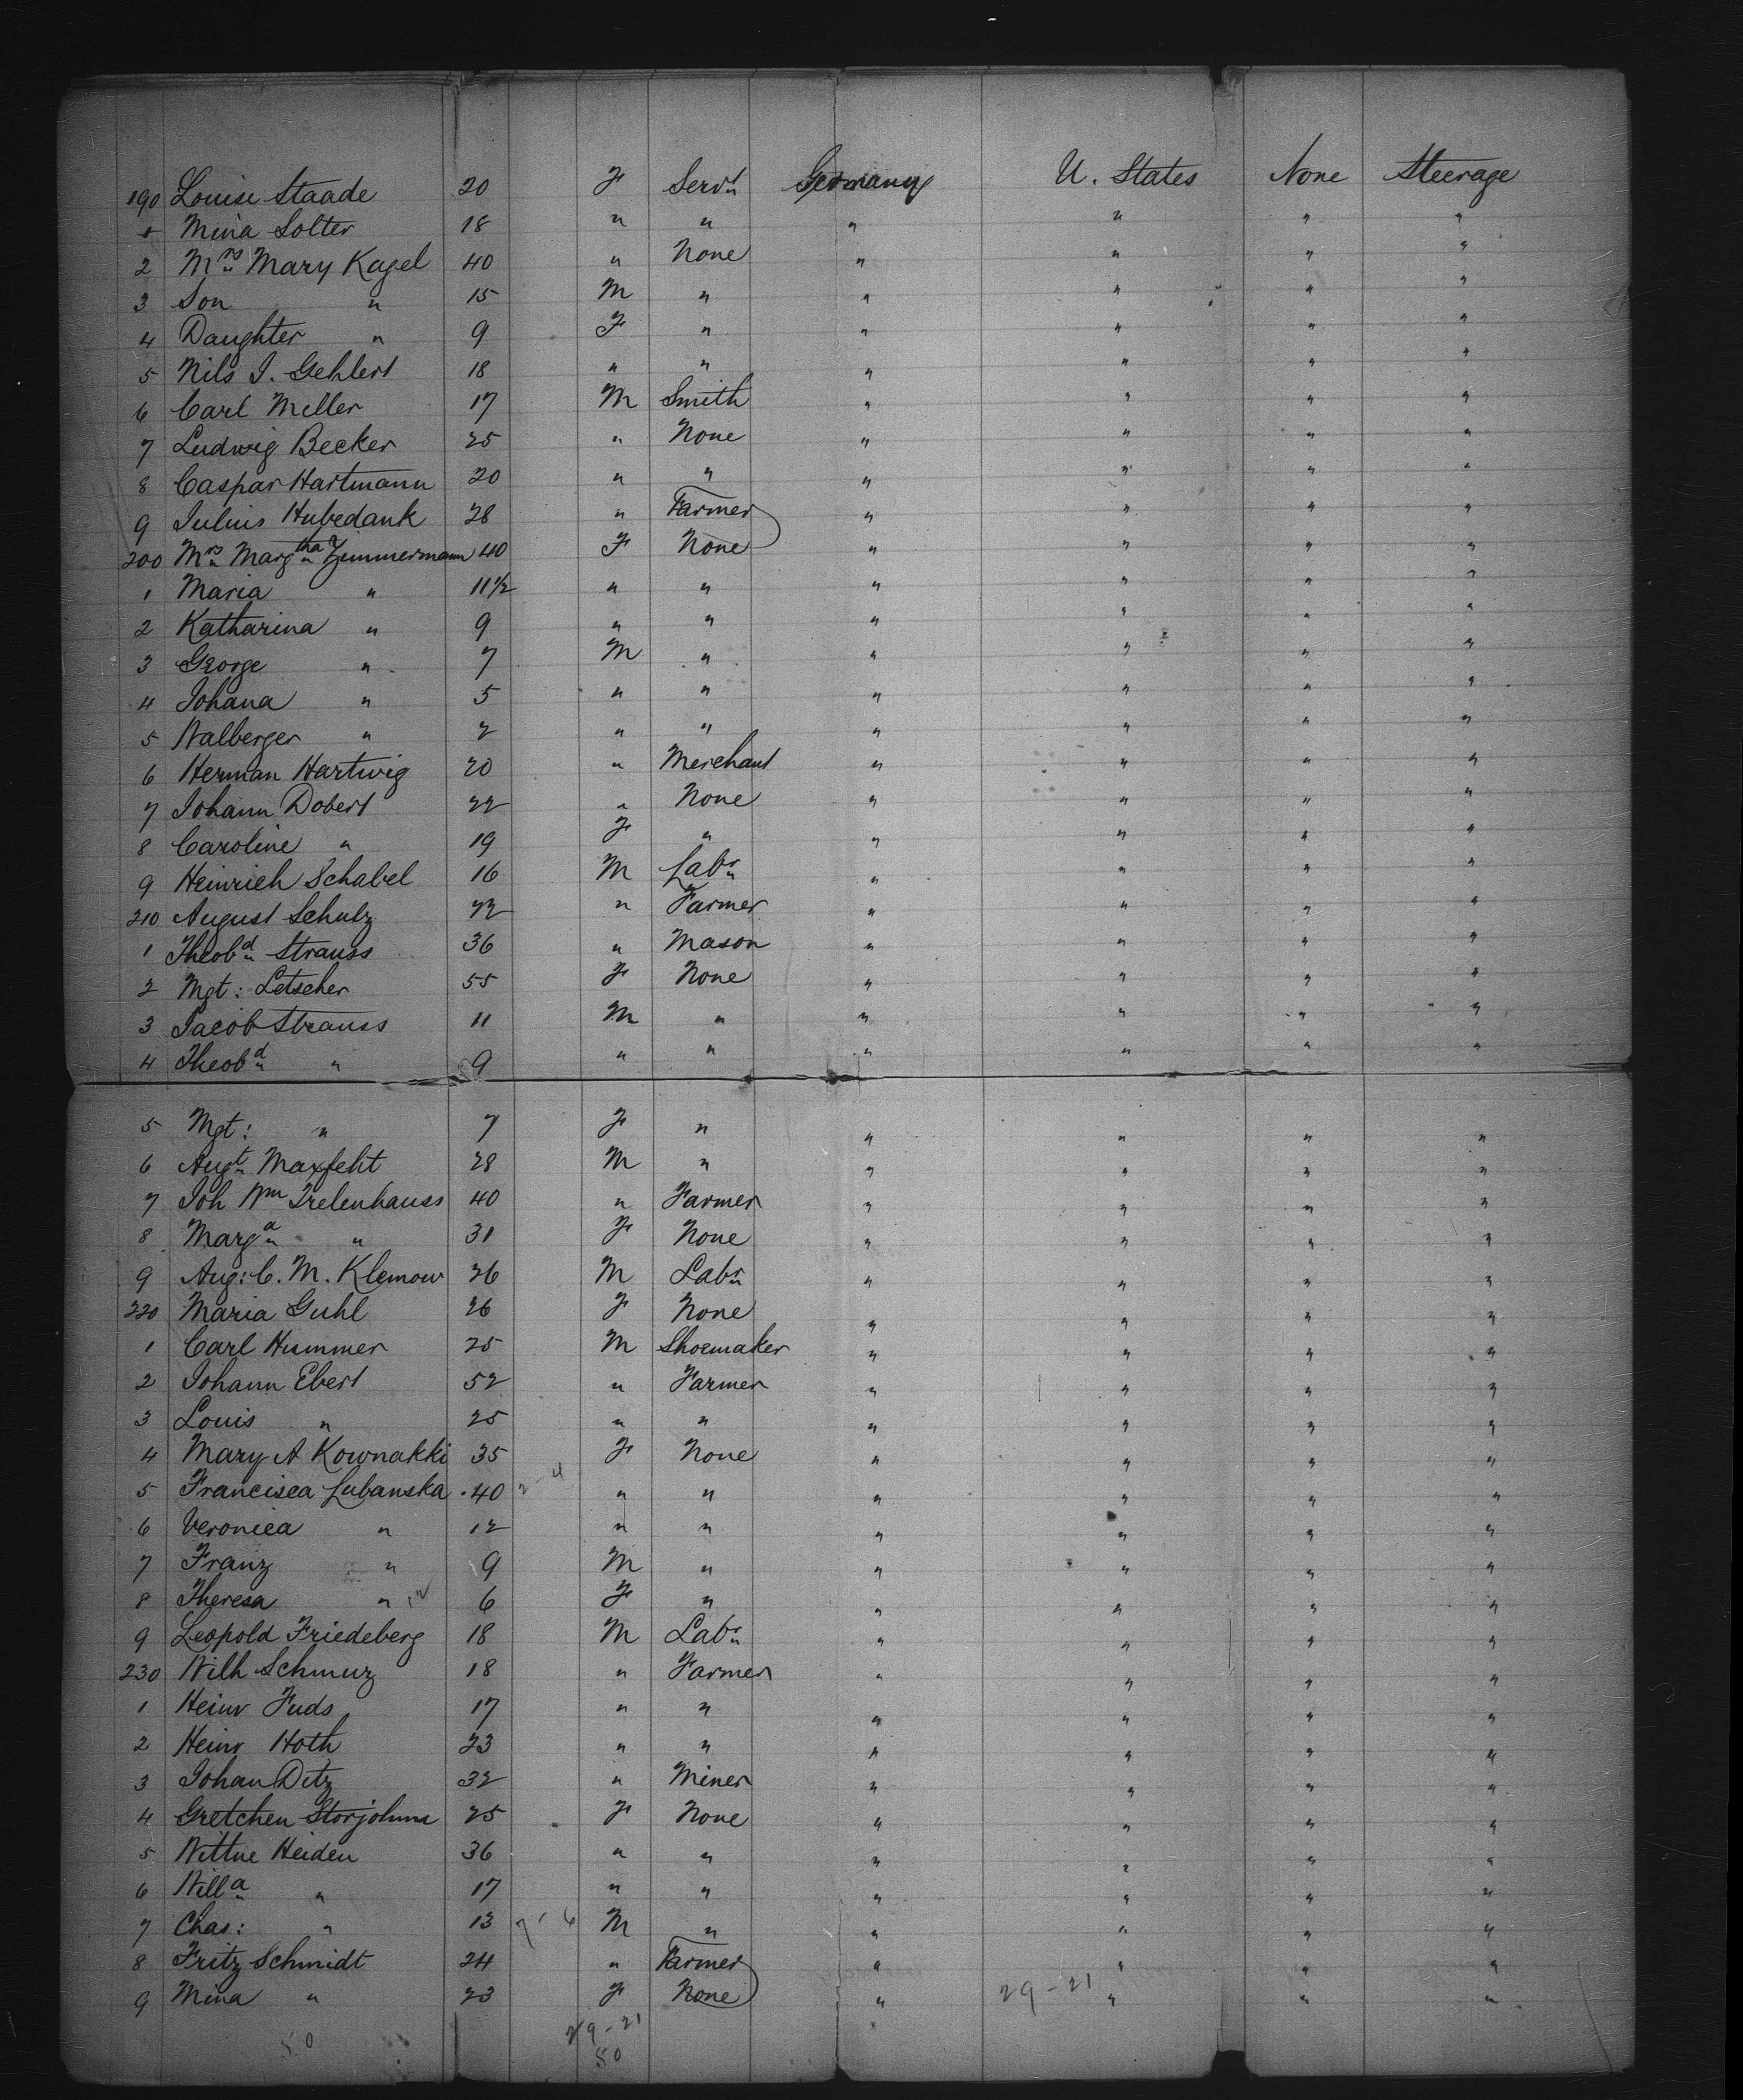 190 Louise Staade 20 F Servt Germany U. States None Steerage
1 Mina Solter 18 " " " " " "
2 Mrs Mary Kagel 40 " None " " " "
3 Son " 15 M " " " " "
4 Daughter " 9 F " " " " "
5 Nils J. Gehlert 18 " " " " " "
6 Carl Meller 17 M Smith " " " "
7 Ludwig Becker 25 " None " " " "
8 Caspar Hartmann 20 " " " " " "
9 Julius Hubedank 28 " Farmer " " " "
200 Mrs Margtha Zimmermann 40 F None " " " "
1 Maria " 11 1/2 " " " " " "
2 Katharina " 9 " " " " " "
3 George " 7 M " " " " "
4 Johana " 5 " " " " " "
5 Walberger " 2 " " " " " "
6 Herman Hartwig 20 " Merchant " " " "
7 Johann Dobert 22 " None " " " "
8 Caroline " 19 F " " " " "
9 Heinrich Schabel 16 M Labr " " " "
210 August Schulz 22 " Farmer " " " "
1 Theobd Strauss 36 " Mason " " " "
2 Mgt: Letscher 55 F None " " " "
3 Jacob Strauss 11 M " " " " "
4 Theobd " 9 " " " " " "
5 Mgt: " 7 F " " " " "
6 Augt Maxfeht 28 M " " " " "
7 Joh Wm Trelenhauss 40 " Farmer " " " "
8 Marga " 31 F None " " " "
9 Aug: C. M. Klemow 26 M Labr " " " "
220 Maria Guhl 26 F None " " " "
1 Carl Hummer 25 M Shoemaker " " " "
2 Johann Ebert 52 " Farmer " " " "
3 Louis " 25 " " " " " "
4 Mary A Kownakki 35 F None " " " "
5 Francisca Lubanska 40 " " " " " "
6 Veronica " 12 " " " " " "
7 Franz " 9 M " " " " "
8 Theresa " 6 F " " " " "
9 Leopold Friedeberg 18 M Labr " " " "
230 Wilh Schmuz 18 " Farmer " " " "
1 Heinr Fuds 17 " " " " " "
2 Heinr Hoth 23 " " " " " "
3 Johan Ditz 32 " Miner " " " "
4 Gretchen Storjohnn 25 F None " " " "
5 Wittne Heiden 36 " " " " " "
6 Willa " 17 " " " " " "
7 Chas: " 13 M " " " " "
8 Fritz Schmidt 24 " Farmer " " " "
9 Mina " 23 F None " 29-21 " " "
50 29-21
50